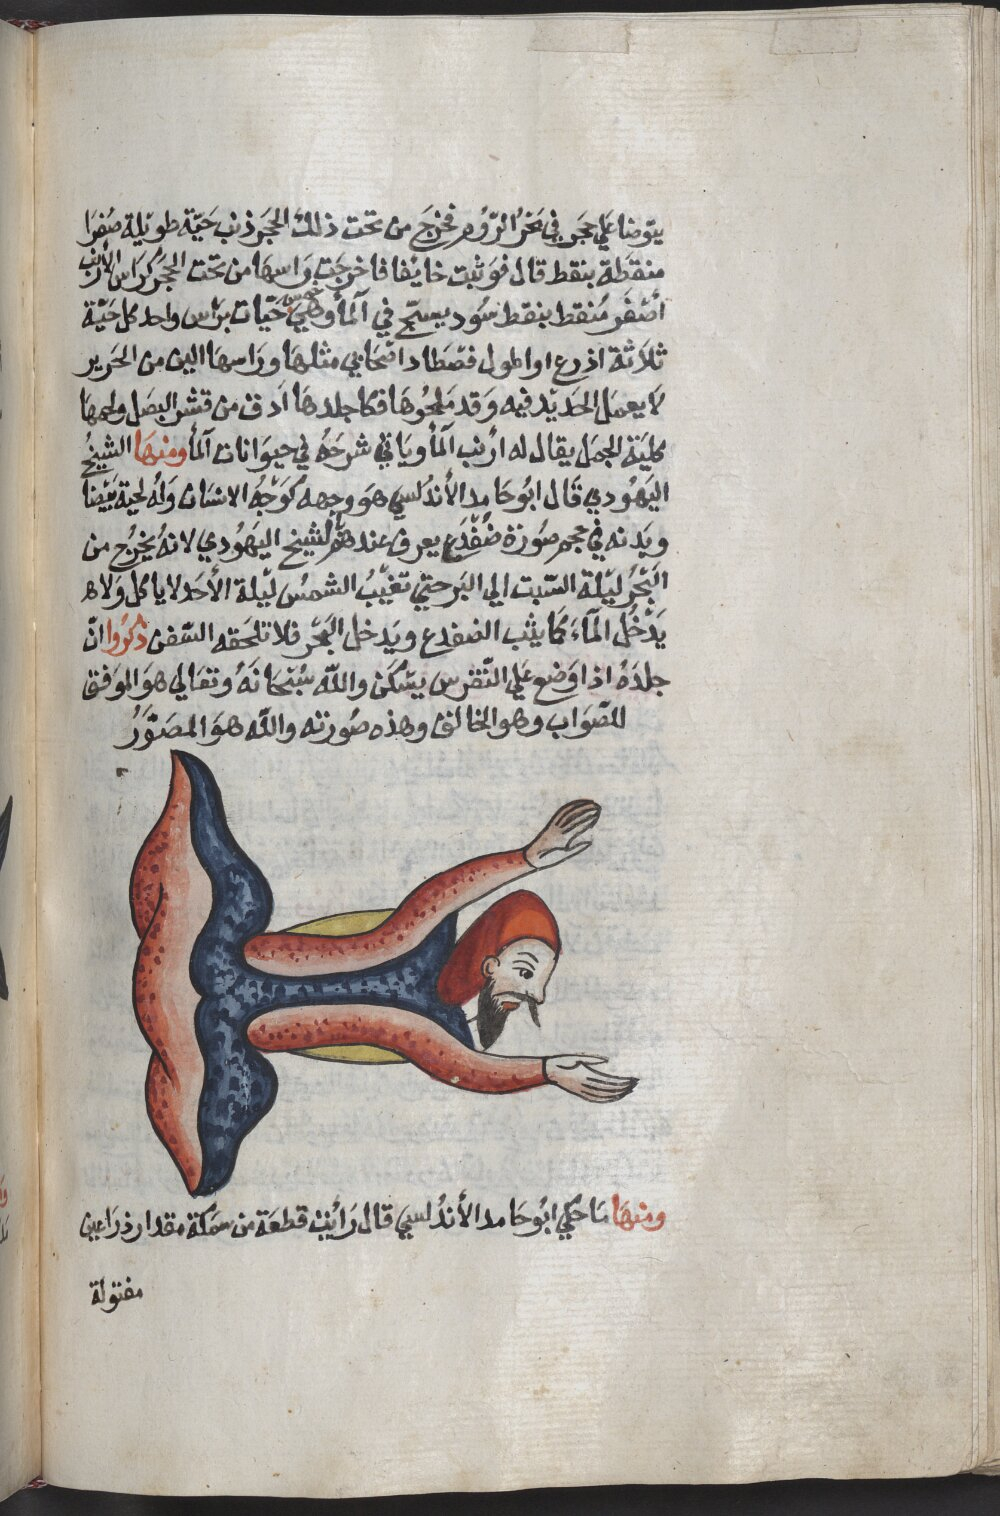 يتوضا علي حجر في بحر الروم فخرج من تحت ذلك الحجر ذنب حية طويلة صفرا
منقطة بنقط قال فوثبت خايفا فاخرجت راسها من تحت الحجر كراس الارنب
اصفر منقط بنقط سود يسبح في المأ وهي خمس حيات براس واحد كل حية
ثلاثة اذرع او اطول فصطاد اصحابي مثلها وراسها الين من الحرير
لا يعمل الحديد فيه وقد ملحوها فكا جلدها ادق من قشر البصل ولحمها
كلية الجمل يقال له ارنب المأ وياتي شرحه في حيوانات المأ ومنها الشيخ
اليهودي قال ابو حامد الأندلسي هو وجهه كوجه الانسان وله لحية بيضا
وبدنه في حجم صورة ضفدع يعرف عندهم الشيخ اليهودي لانه يخرج من
البحر ليلة السبت الي البر حتي تغيب الشمس ليلة الأحد لا ياكل ولا
يدخل المآء كا يثب الضفدع ويدخل البحر فلا تلحقه السفن ذكروا ان
جلده اذا وضع علي النقرس يسكن والله سبحانه وتعالي هو الموفق
للصواب وهو الخالق وهذه صورته والله هو المصور
ومنها ما حكي ابو حامد الأندلسي قال رايت قطعة من سمكة مقدار ذراعين
مفتولة